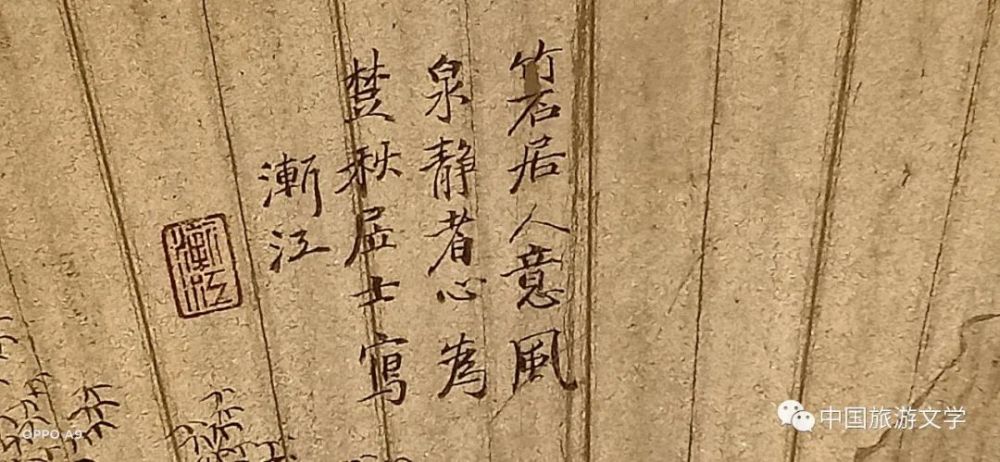 竹石居人意風
泉静者心為
楚秋居士寫
漸江
漸江
中国旅游文学
OPPO A9